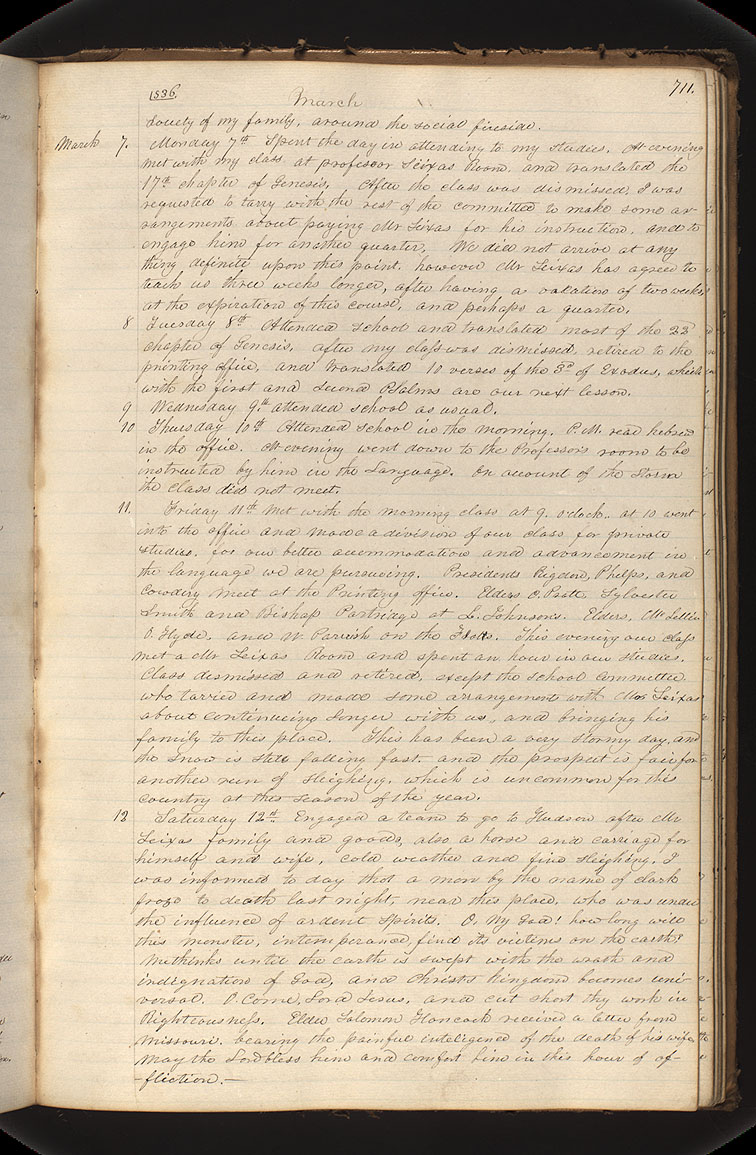 1836 March 711.
society of my family, around the social fireside.
March 7. Monday 7th Spent the day in attending to my studies. At evening
met with my class at professor Seixas Room, and translated the
17th chapter of Genesis. After the class was dismissed, I was
requested to tarry with the rest of the committee to make some ar-
rangements about paying Mr Seixas for his instruction, and to
engage him for another quarter, We did not arrive at any
thing definite upon this point. however Mr Seixas has agreed to
teach us three weeks longer, after having a vacation of two weeks,
at the expiration of this course, and perhaps a quarter.
8 Tuesday 8th Attended School and translated most of the 22
chapter of Genesis, after my class was dismissed, retired to the
printing office, and translated 10 verses of the 3d of Exodus, which
with the first and second Psalms are our next lesson.
9 Wednesday 9th attended school as usual.
10 Thursday 10th Attended School in the morning. P.M. read hebrew
in the office. At evening went down to the Professors room to be
instructed by him in the Language. On account of the Storm
the class did not meet.
11. Friday 11th Met with the morning class at 9, o'clock. at 10 went
into the office and made a division of our class for private
studies, for our better accommodation and advancement in
the language we are pursueing. Presidents Rigdon, Phelps, and
Cowdery meet at the Printing office. Elders O. Pratt Sylvester
Smith and Bishop Partridge at L. Johnsons. Elders, McLellin
O. Hyde, and W. Parrish on the Flatts. This evening our class
met a Mr Seixas Room and spent an hour in our studies.
Class dismissed and retired, except the school committee,
who tarried and made some arrangement with Mr Seixas
about continueing longer with us, and bringing his
family to this place. This has been a very stormy day, and
the snow is still falling fast, and the prospect is fair for
another run of sleighing, which is uncommon for this
country at this season of the year.
12 Saturday 12th Engaged a team to go to Hudson after Mr
Seixas family and goods, also a horse and carriage for
himself and wife, cold weather and fine sleighing, I
was informed to day that a man by the name of Clark
froze to death last night, near this place, who was under
the influence of ardent spirits. O, my God! how long will
this monster, intemperance, find its victims on the earth!
Methinks until the earth is swept with the wrath and
indignation of God, and Christs kingdom becomes uni-
versal. O Come, Lord Jesus, and cut short thy work in
Righteousness. Elder Solomon Hancock received a letter from
Missouri, bearing the painful inteligence of the death of his wife
May the Lord bless him and comfort him in this hour of af-
-fliction.—